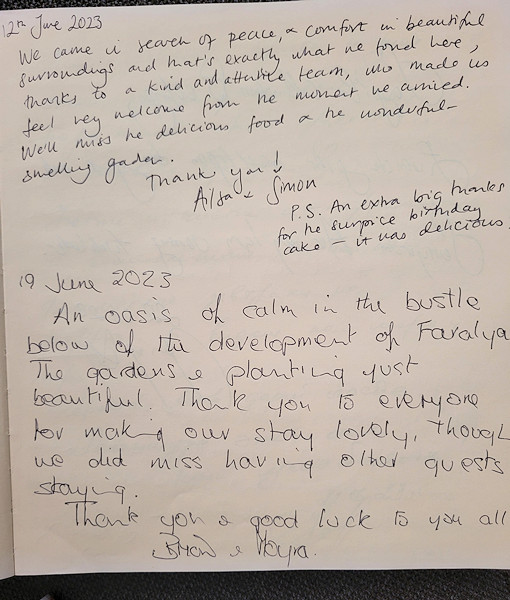 12th June 2023
We came in search of peace, & comfort in beautiful
surroundings and that's exactly what we found here,
thanks to a kind and attentive team, who made us
feel very welcome from the moment we arrived.
We'll miss the delicious food & the wonderful-
smelling garden.
Thank you!
Ailsa & Simon
P.S. An extra big thanks
for the surprise birthday
cake - it was delicious.
19 June 2023
An oasis of calm in the bustle
below of the development of Faralya
The gardens & planting just
beautiful. Thank you to everyone
for making our stay lovely, though
we did miss having other guests
staying.
Thank you & good luck to you all
& Moyra.